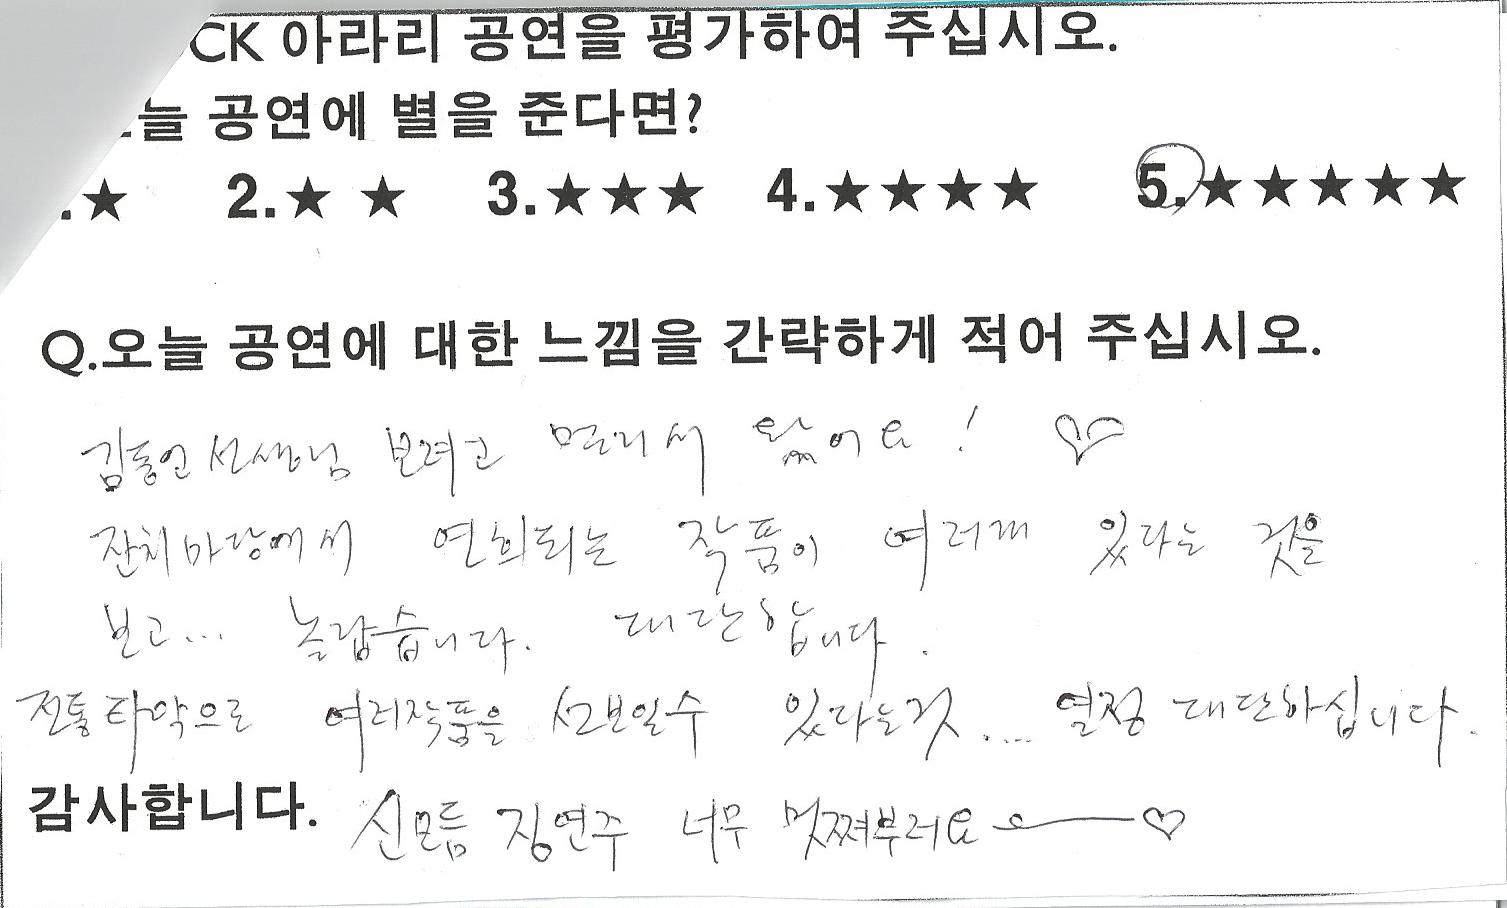 CK 아라리 공연을 평가하여 주십시오.
늘 공연에 별을 준다면?
.★ 2.★ ★ 3.★★★ 4.★★★★ 5.★★★★★
Q.오늘 공연에 대한 느낌을 간략하게 적어 주십시오.
김동언선생님 보려고 멀리서 왔어요! ♡
잔치마당에서 연희되는 작품이 여러개 있다는 것을
보고... 놀랍습니다. 대단합니다.
전통타악으로 여러작품을 선보일수 있다는것.... 열정 대단하십니다.
감사합니다. 신모듬 징연주 너무 멋쪄부러요 ♡